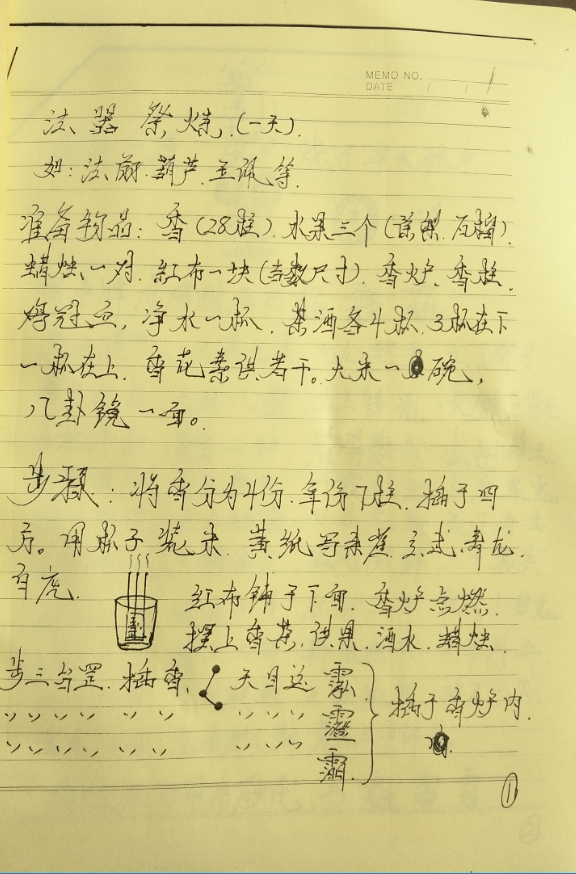 MEMO NO.
DATE / /
法器祭炼,(一天).
如:法 葫芦.玉 等.
准备物品:香(28柱).水果三个().
蜡烛一对.红布一块(尺寸).香炉.香柱.
净水一杯.茶酒各4杯,3杯在下
一杯在上.香花素供若干。大米一碗,
八卦镜一面。
步骤:将香分为4份.每份7柱.插于四
方。用杯子装米.黄纸写朱雀.玄武.青龙.
白虎. 红布铺于下面.香炉点燃.
摆上香茶.供果.酒水.蜡烛.
步三台罡.插香. 插于香炉内.
1